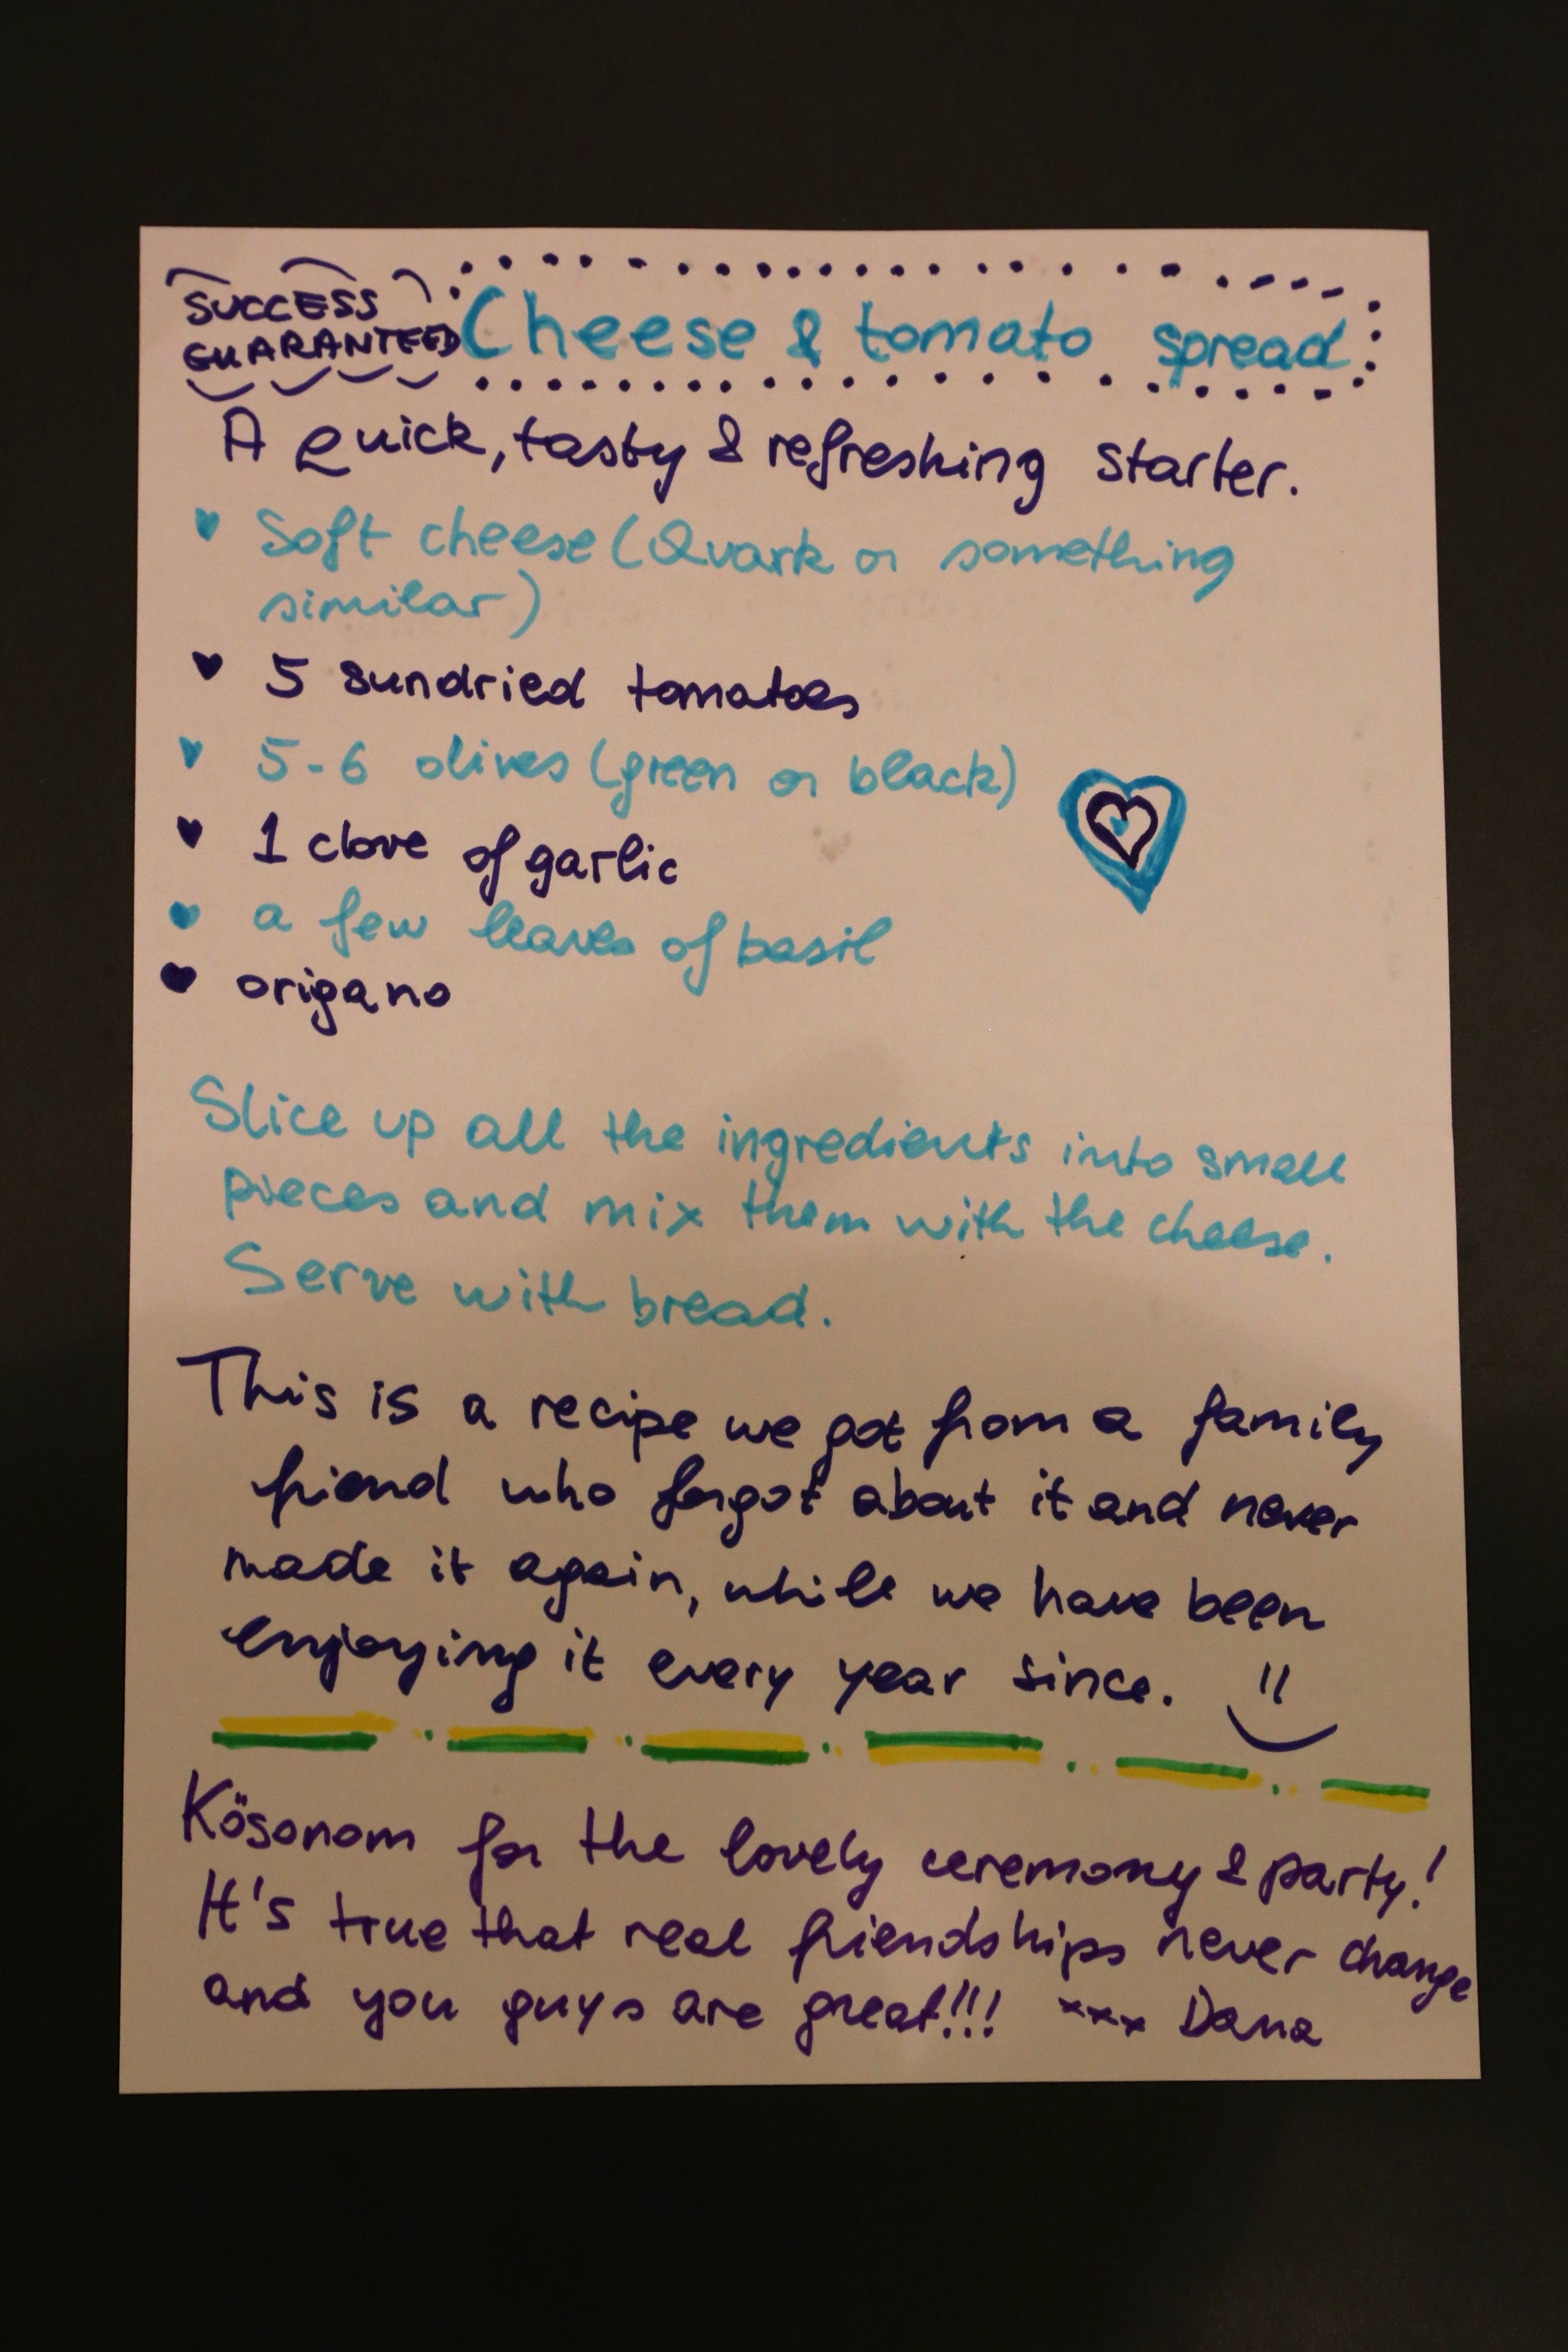 SUCCESS
GUARANTEED
Cheese & tomato spread
A quick, tasty & refreshing starter.
Soft cheese (Quark or something
similar)
5 sundried tomatoes
5-6 olives (green or black)
1 clove of garlic
a few leaves of basil
origano
Slice up all the ingredients into small
pieces and mix them with the cheese.
Serve with bread.
This is a recipe we got from a family
friend who forgot about it and never
made it again, while we have been
enjoying it every year since.
Kösonom for the lovely ceremony & party!
It's true that real friendships never change
and you guys are great!!! xxx Dana